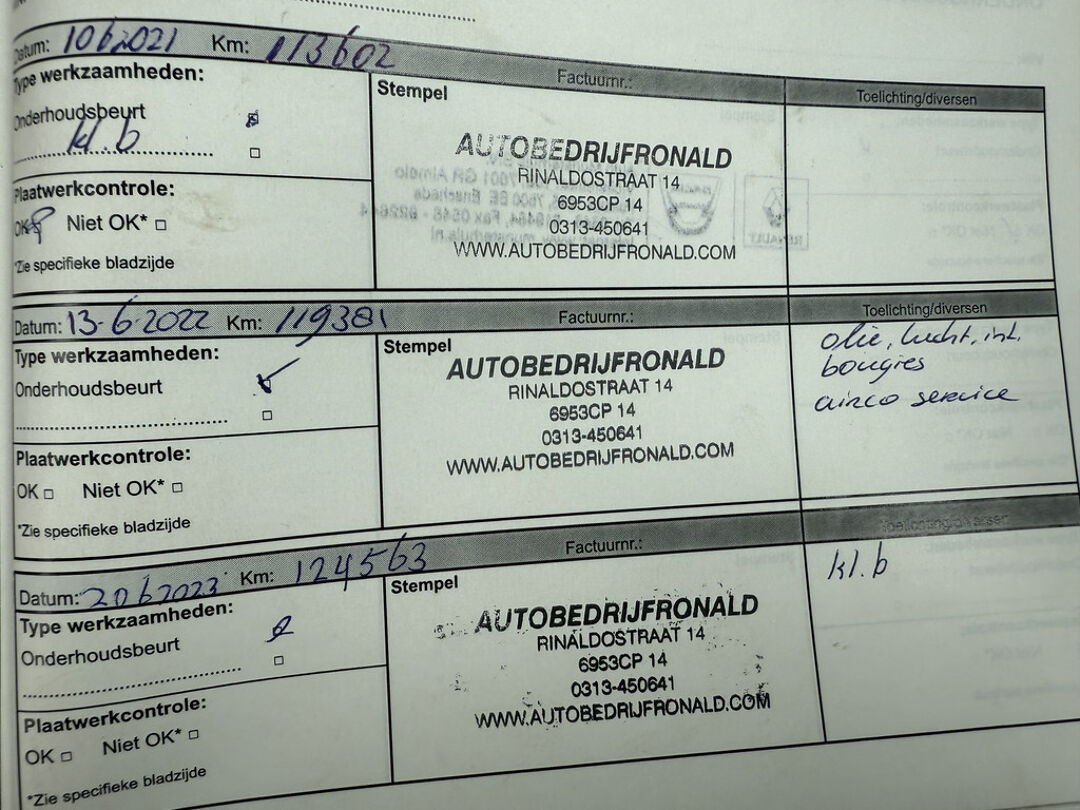 Datum: 10 6 2021 Km: 113602 Factuurnr.:
Type werkzaamheden:
Onderhoudsbeurt
kl.b
Plaatwerkcontrole:
OK Niet OK*
*Zie specifieke bladzijde
Stempel
AUTOBEDRIJFRONALD
RINALDOSTRAAT 14
6953CP 14
0313-450641
WWW.AUTOBEDRIJFRONALD.COM
Toelichting/diversen
Datum: 13-6-2022 Km: 119381 Factuurnr.:
Type werkzaamheden:
Onderhoudsbeurt
Plaatwerkcontrole:
OK Niet OK*
*Zie specifieke bladzijde
Stempel
AUTOBEDRIJFRONALD
RINALDOSTRAAT 14
6953CP 14
0313-450641
WWW.AUTOBEDRIJFRONALD.COM
Toelichting/diversen
olie, lucht, int.
bougies
airco service
Datum: 20 6 2023 Km: 124563 Factuurnr.:
Type werkzaamheden:
Onderhoudsbeurt
Plaatwerkcontrole:
OK Niet OK*
*Zie specifieke bladzijde
Stempel
AUTOBEDRIJFRONALD
RINALDOSTRAAT 14
6953CP 14
0313-450641
WWW.AUTOBEDRIJFRONALD.COM
Toelichting/diversen
kl.b